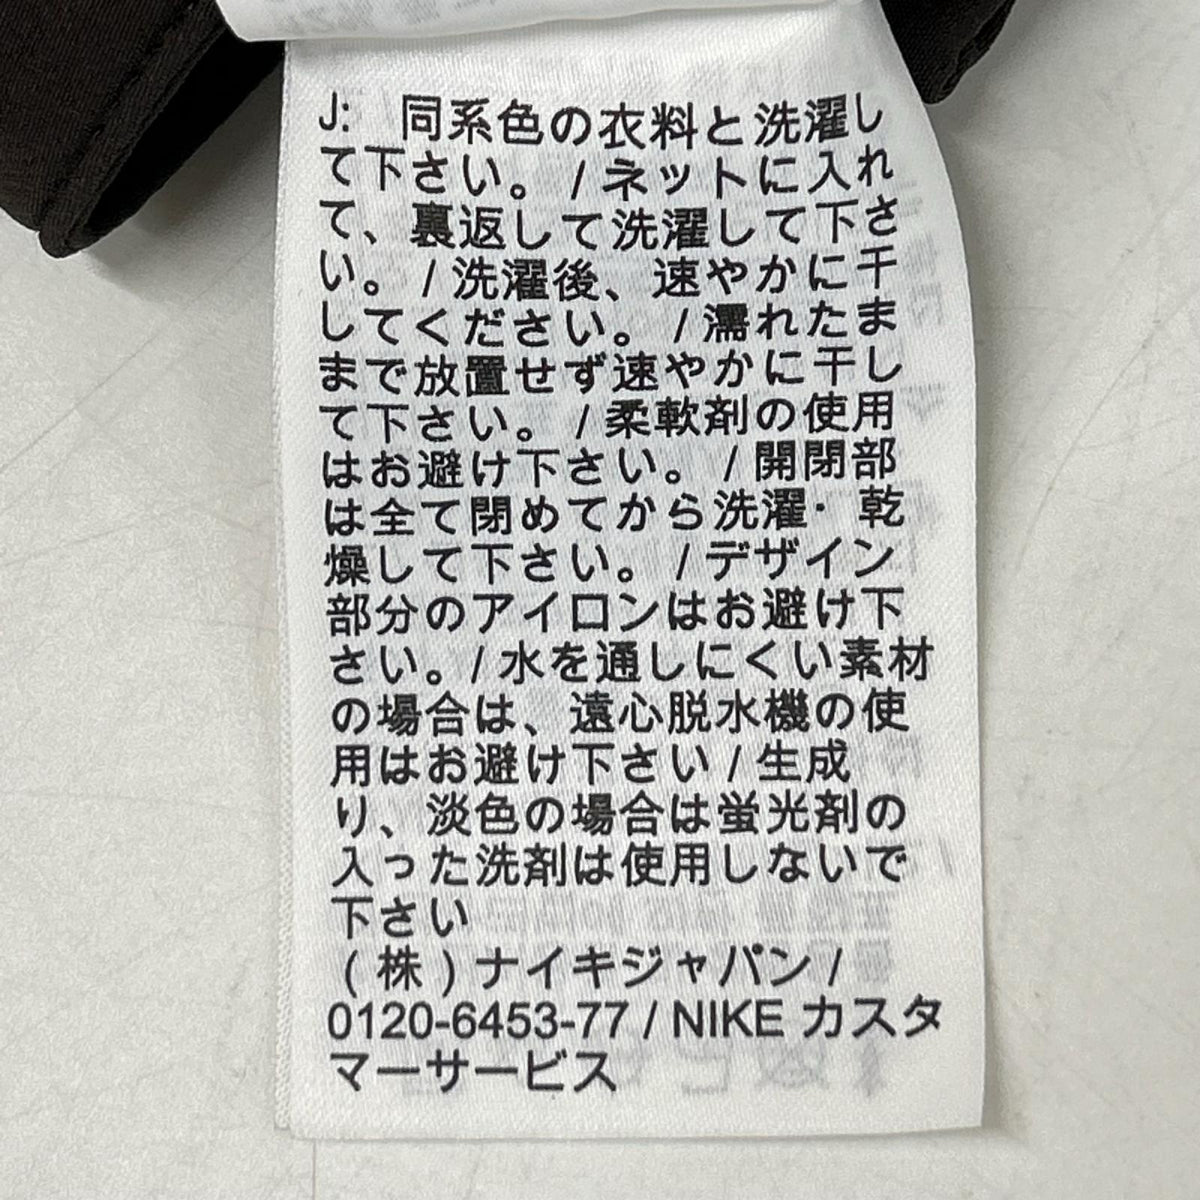 J: 同系色の衣料と洗濯し
て下さい。 / ネットに入れ
て、裏返して洗濯して下さ
い。 / 洗濯後、速やかに干
してください。 / 濡れたま
まで放置せず速やかに干し
て下さい。 / 柔軟剤の使用
はお避け下さい。 / 開閉部
は全て閉めてから洗濯・乾
燥して下さい。 / デザイン
部分のアイロンはお避け下
さい。/ 水を通しにくい素材
の場合は、遠心脱水機の使
用はお避け下さい / 生成
り、淡色の場合は蛍光剤の
入った洗剤は使用しないで
下さい
(株)ナイキジャパン /
0120-6453-77 / NIKE カスタ
マーサービス